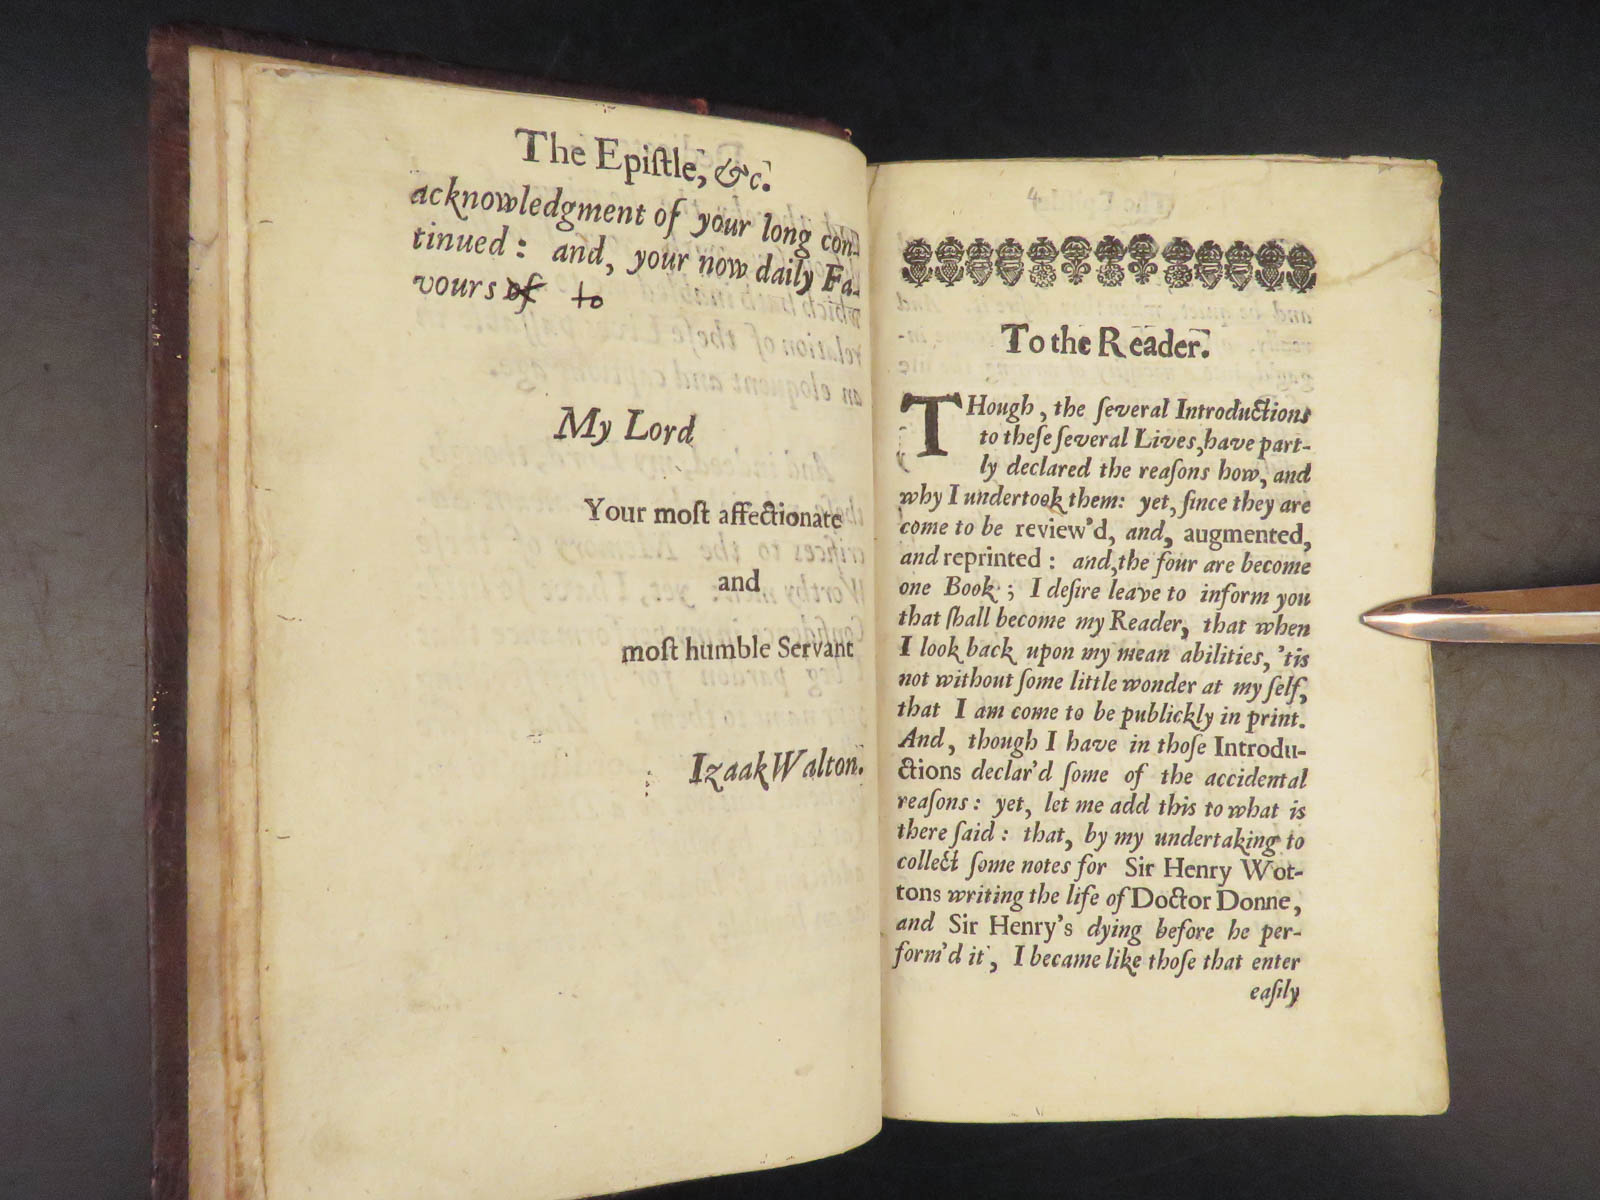 The Epiſtle, &c.
acknowledgment of your long con-
tinued: and, your now daily Fa-
vours of to
My Lord
Your moſt affectionate
and
moſt humble Servant
Izaak Walton.
4
To the Reader.
THough, the ſeveral Introductions
to theſe ſeveral Lives, have part-
ly declared the reaſons how, and
why I undertook them: yet, ſince they are
come to be review'd, and, augmented,
and reprinted: and, the four are become
one Book; I deſire leave to inform you
that ſhall become my Reader, that when
I look back upon my mean abilities, 'tis
not without ſome little wonder at my ſelf,
that I am come to be publickly in print.
And, though I have in thoſe Introdu-
ctions declar'd ſome of the accidental
reaſons: yet, let me add this to what is
there ſaid: that, by my undertaking to
collect ſome notes for Sir Henry Wot-
tons writing the life of Doctor Donne,
and Sir Henry's dying before he per-
form'd it, I became like thoſe that enter
eaſily